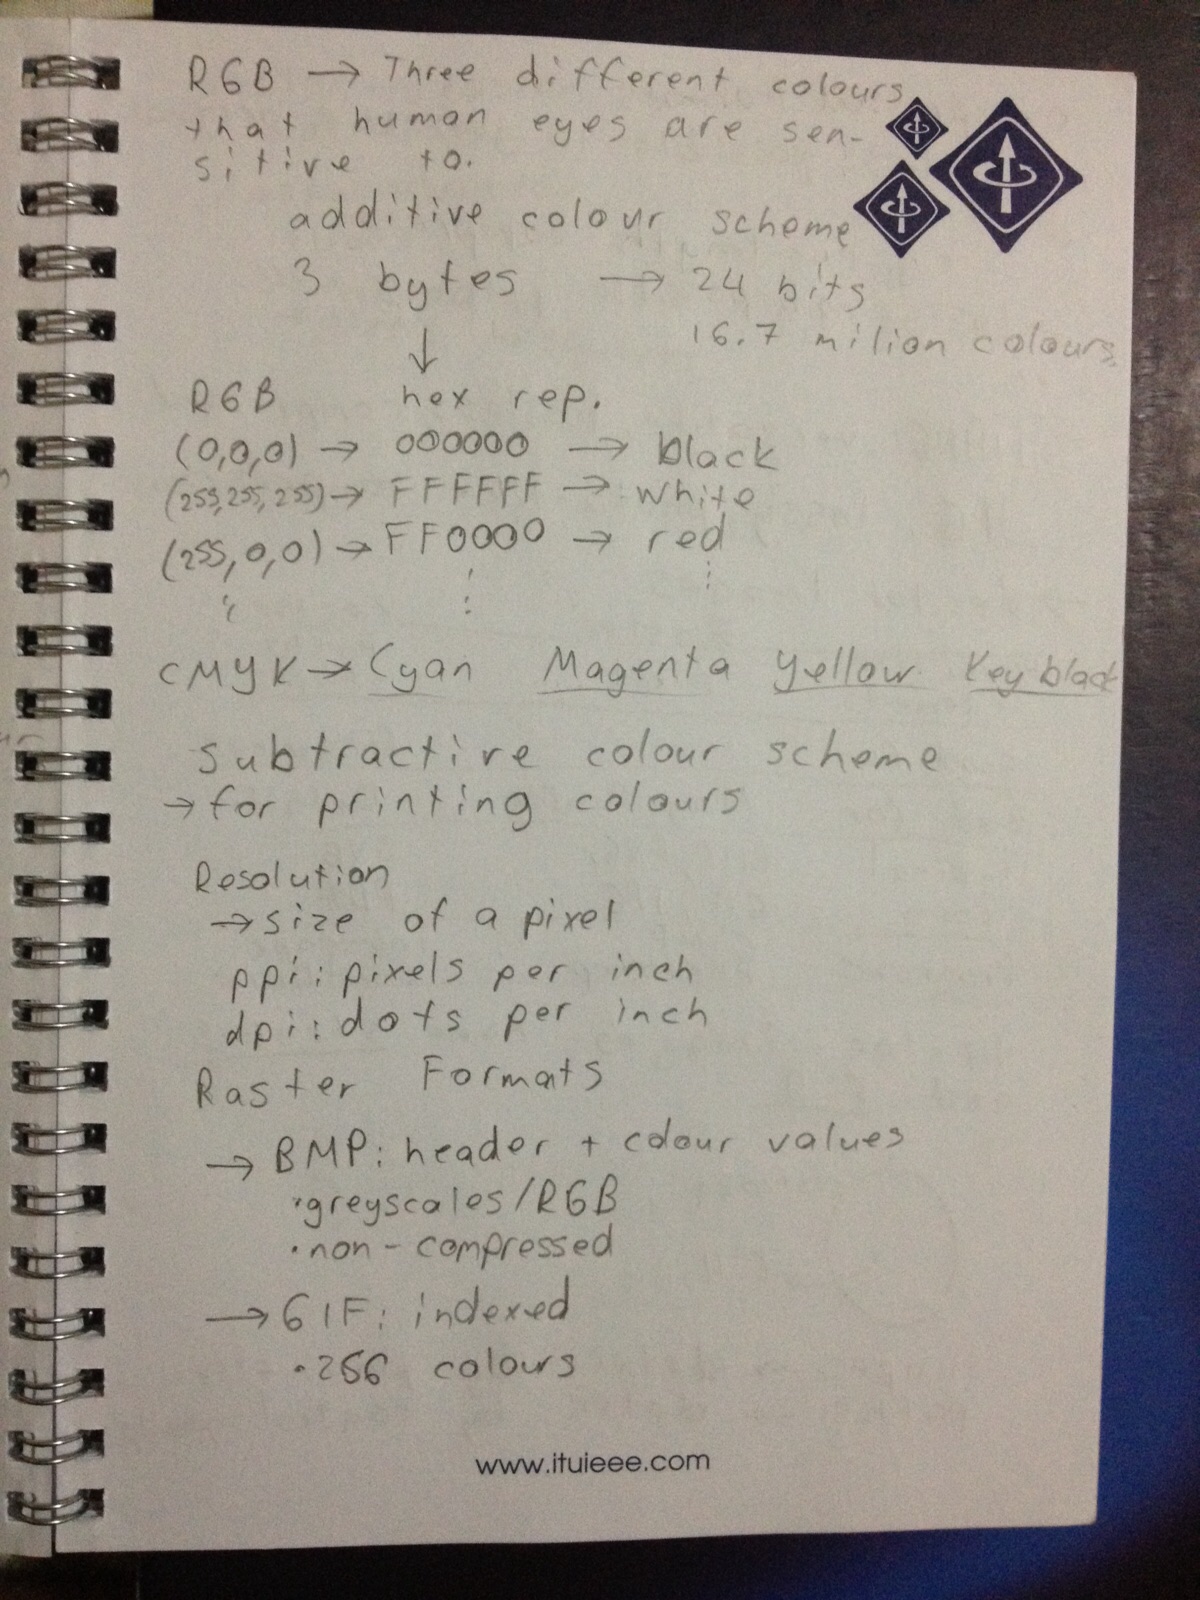 RGB → Three different colours
that human eyes are sen-
sitive to.
additive colour scheme
3 bytes → 24 bits
16.7 milion colours
↓
RGB hex rep.
(0,0,0) → 000000 → black
(255,255,255) → FFFFFF → white
(255,0,0) → FF0000 → red
⋮ ⋮ ⋮
CMYK → Cyan Magenta Yellow Key black
Subtractive colour scheme
→ for printing colours
Resolution
→ size of a pixel
ppi: pixels per inch
dpi: dots per inch
Raster Formats
→ BMP: header + colour values
·greyscales/RGB
·non-compressed
→ GIF: indexed
·256 colours
www.ituieee.com